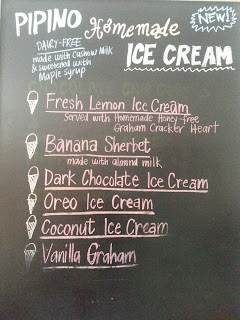 PIPINO Homemade NEW!
ICE CREAM
DAIRY-FREE
made with Cashew Milk
& sweetened with
Maple syrup
Fresh Lemon Ice Cream
Served with Homemade Honey free
Graham Cracker Heart
Banana Sherbet
made with almond milk
Dark Chocolate Ice Cream
Oreo Ice Cream
Coconut Ice Cream
Vanilla Graham